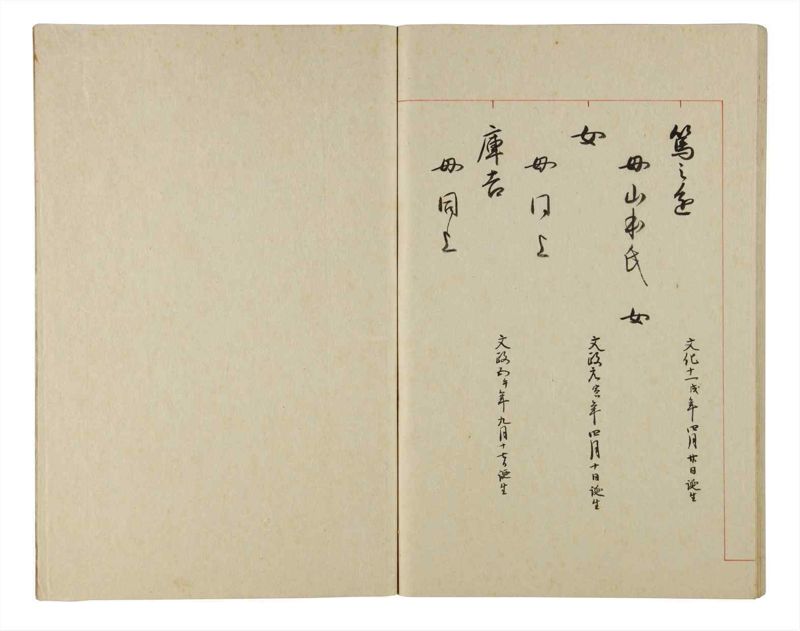 篤之進
文化十一戌年四月廿日誕生
母山本氏 女
女
文政元寅年四月十日誕生
母同上
庫吉
文政五午年九月十七日誕生
母同上